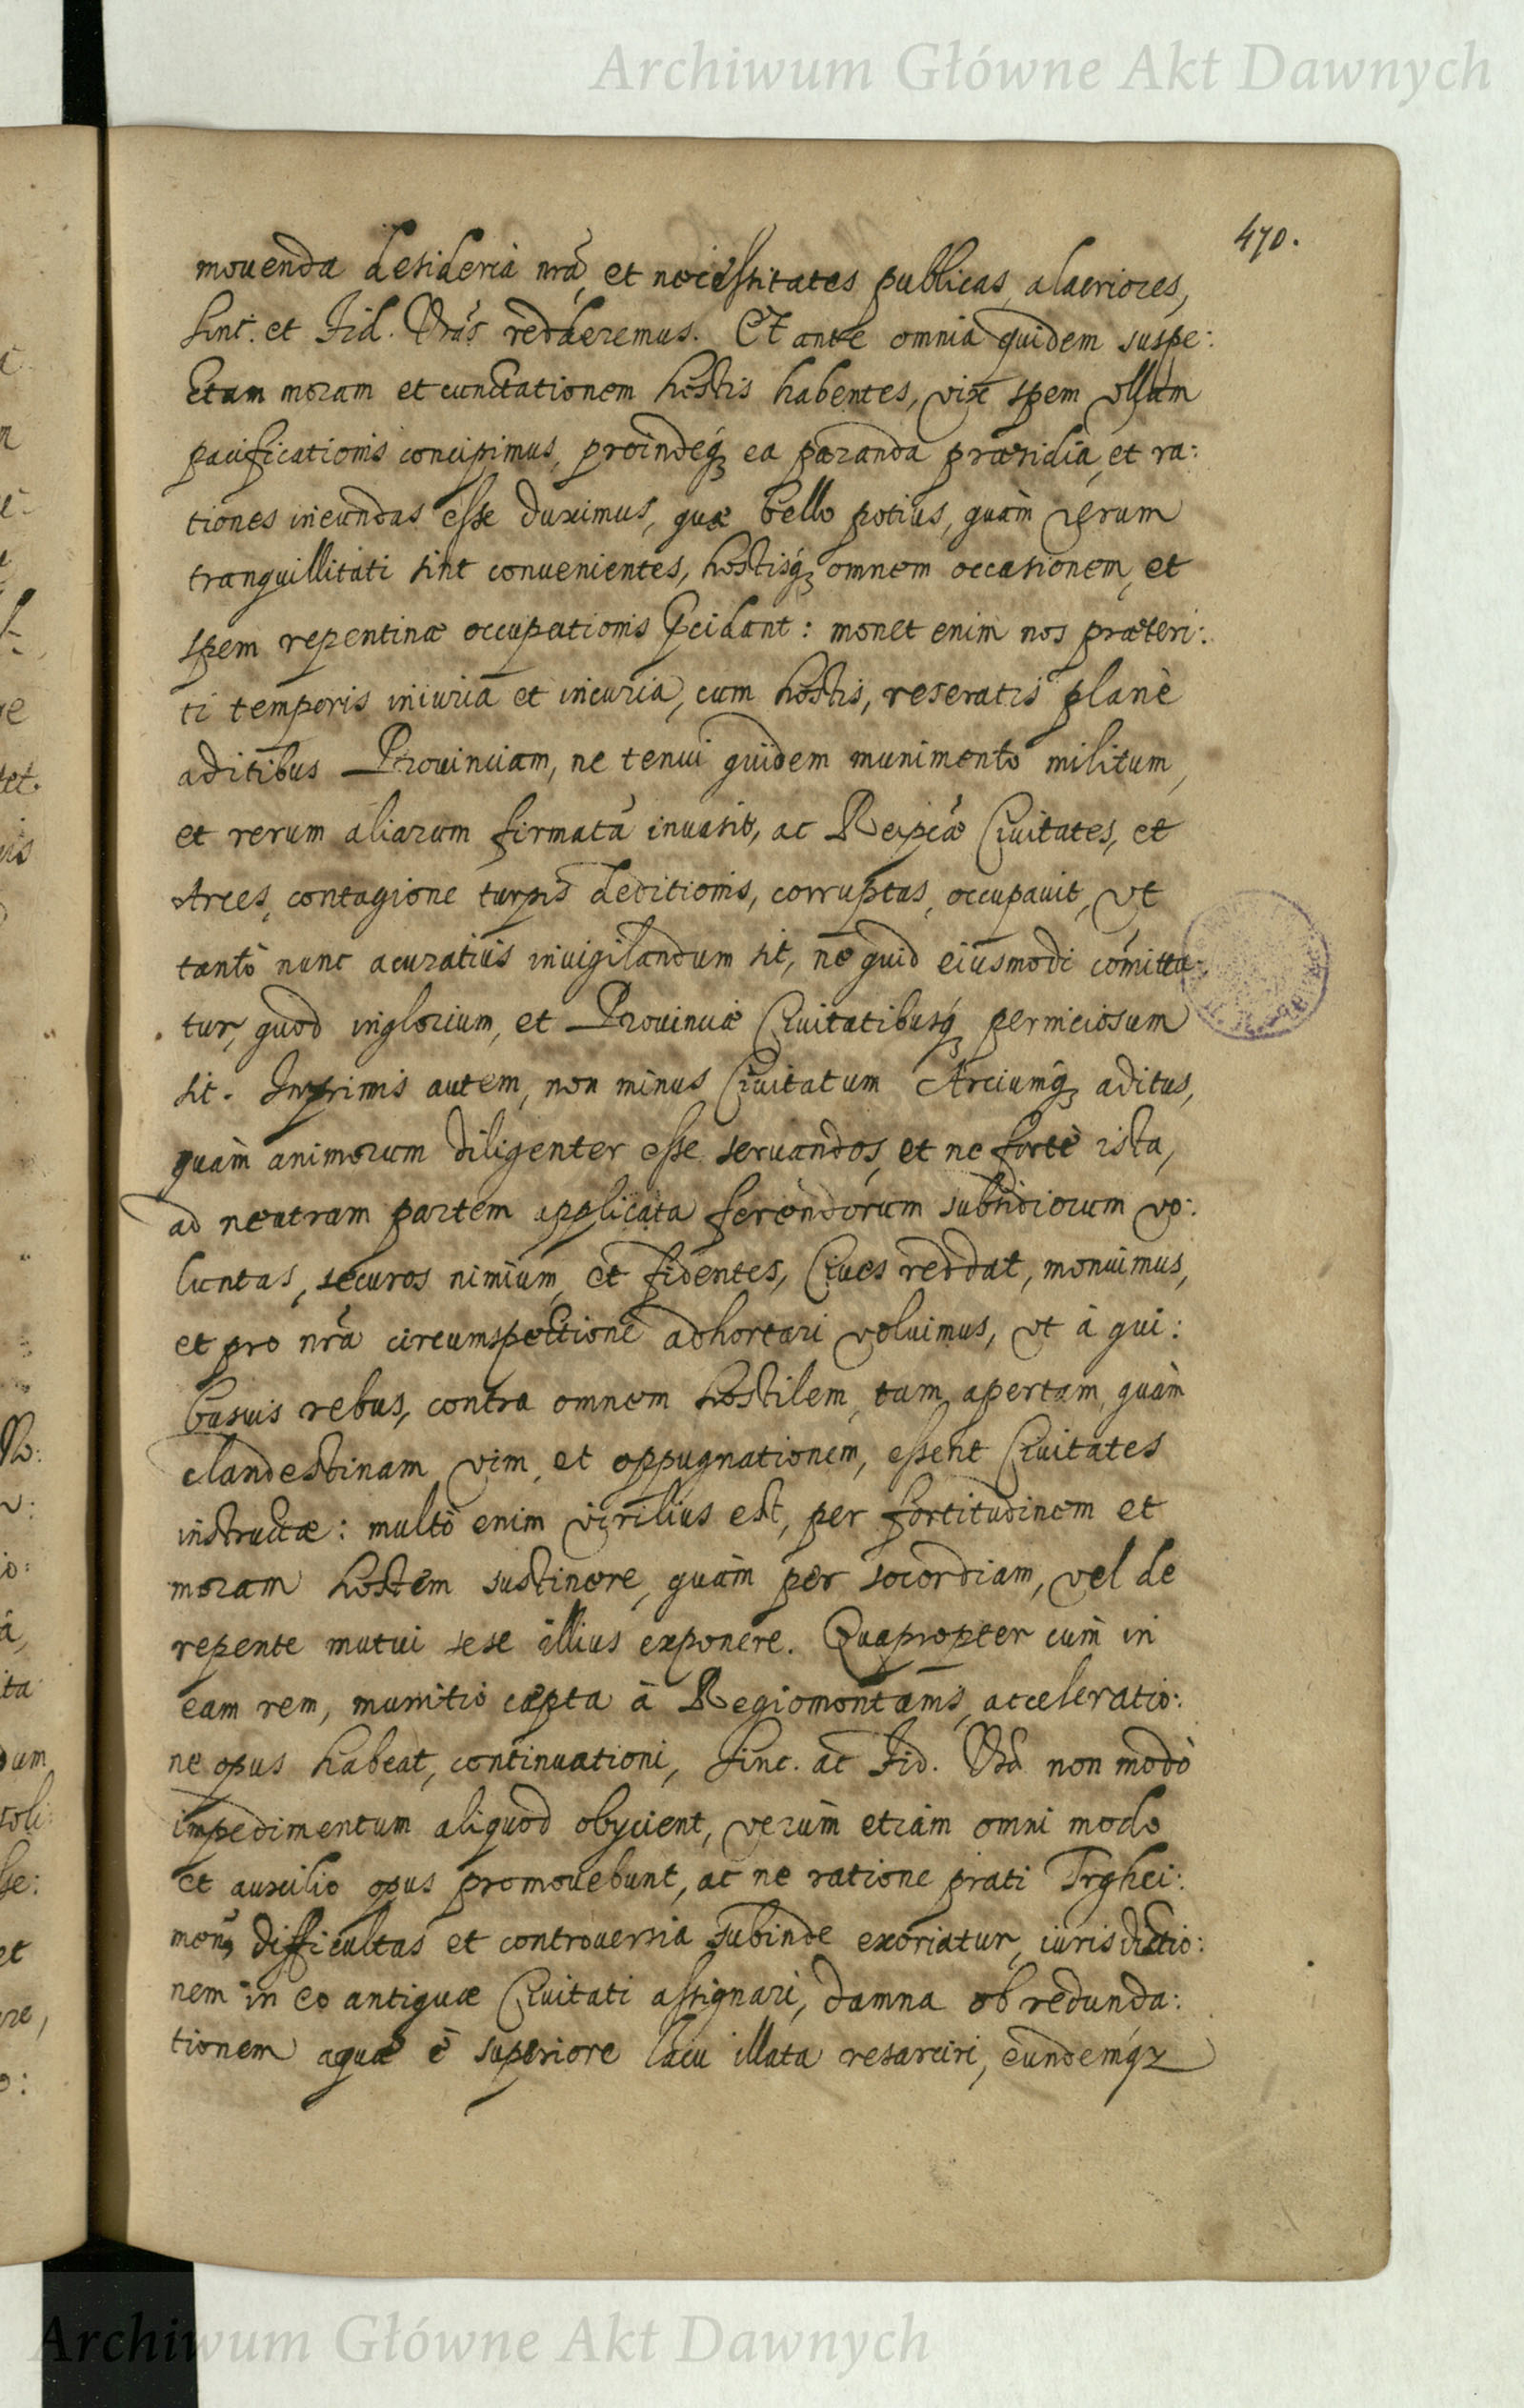 Archiwum Główne Akt Dawnych
470.
mouenda desideria nrã, et necessitates publicas, alacriores,
Sinc. et Fid. Vrãs redderemus. Et ante omnia quidem suspe:
ctam moram et cunctationem hostis habentes, vix spem vllam
pacificationis concipimus, proindeq́ꝫ ea paranda præsidia, et ra:
tiones ineundas esse duximus, quæ bello potius, quàm rerum
tranquillitati sint conuenientes, hostisq́ꝫ omnem occasionem, et
spem repentinæ occupationis præcidant: monet enim nos præteri:
ti temporis iniuria et incuria, cum hostis, reseratis planè
aditibus Prouinciam, ne tenui quidem munimento militum,
et rerum aliarum firmatã inuasit, ac Reipcæ Ciuitates, et
Arces, contagione turpis deditionis, corruptas, occupauit, vt
tantò nunc acuratiùs inuigilandum sit, ne quid eiusmodi comitta:
tur, quod inglorium, et Prouinciæ Ciuitatibusq́ꝫ perniciosum
sit. Inprimis autem, non minus Ciuitatum Arciumq́ꝫ aditus,
quàm animorum diligenter esse seruandos, et ne fortè ista,
ad neutram partem applicata ferendorum subsidiorum vo:
luntas, securos nimium, et fidentes, Ciues reddat, monuimus,
et pro nrã circumspectione adhortari voluimus, vt à qui:
busuis rebus, contra omnem hostilem, tam apertam, quàm
clandestinam vim, et oppugnationem, essent Ciuitates
instructæ: multò enim virilius est, per fortitudinem et
moram hostem sustinere, quàm per socordiam, vel de
repente mutui sese illius exponere. Quapropter cum in
eam rem, munitio cæpta à Regiomontanis, acceleratio:
ne opus habeat, continuationi, Sinc. ac Fid. Vræ non modò
impedimentum aliquod obijcient, verùm etiam omni modo
et auxilio opus promouebunt, ac ne ratione prati
difficultas et controuersia subinde exoriatur, iurisdictio:
nem in eo antiquæ Ciuitati assignari, damna ob redunda:
tionem aquæ è superiore lacu illata resarciri, eundemq́ꝫ
Archiwum Główne Akt Dawnych